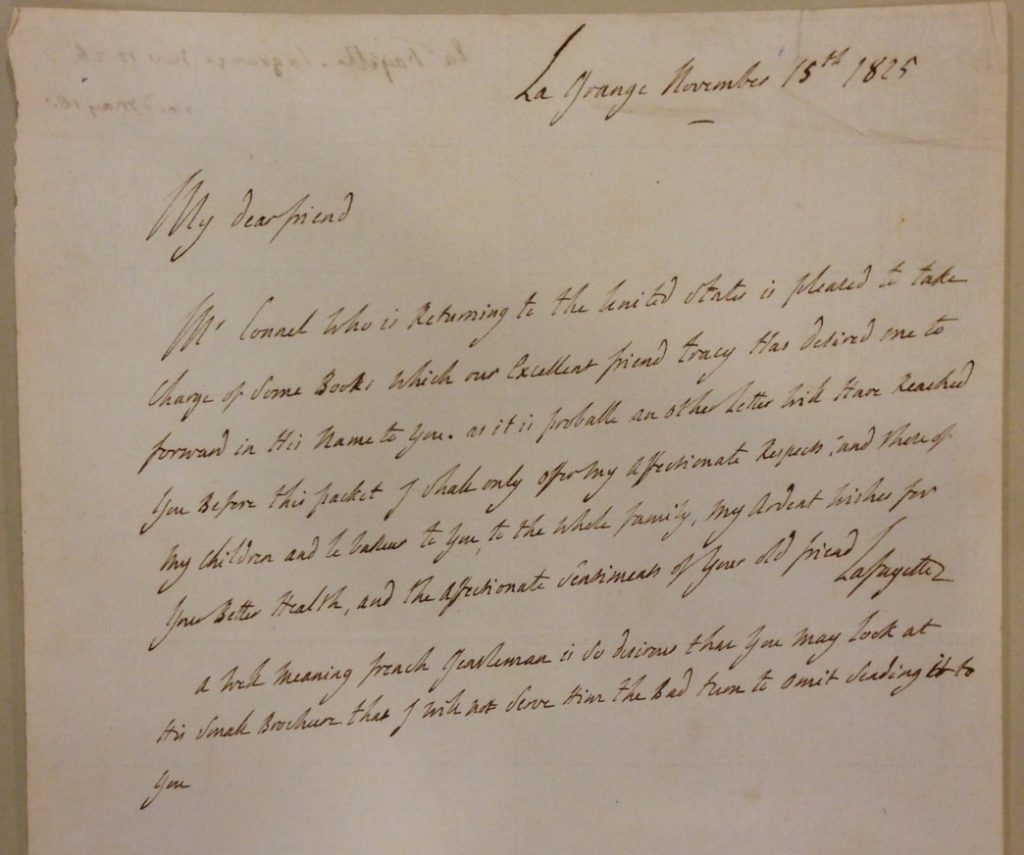 La Grange November 15th 1825
My dear friend
Mr Connel Who is Returning to the United States is pleased to take
Charge of Some Books Which our Excellent friend tracy Has desired me to
forward in His Name to You. as it is probable an other letter will Have Reached
You Before this packet I shall only offer My Affectionate Respects, and those of
My Children and le Vasseur to You, to the Whole family, My Ardent Wishes for
Your Better Health, and the Affectionate Sentiments of Your old friend
Lafayette
a well Meaning french Gentleman is So desirous that You May look at
His Small Brochure that I will not Serve Him the Bad turn to omit Sending it to
You